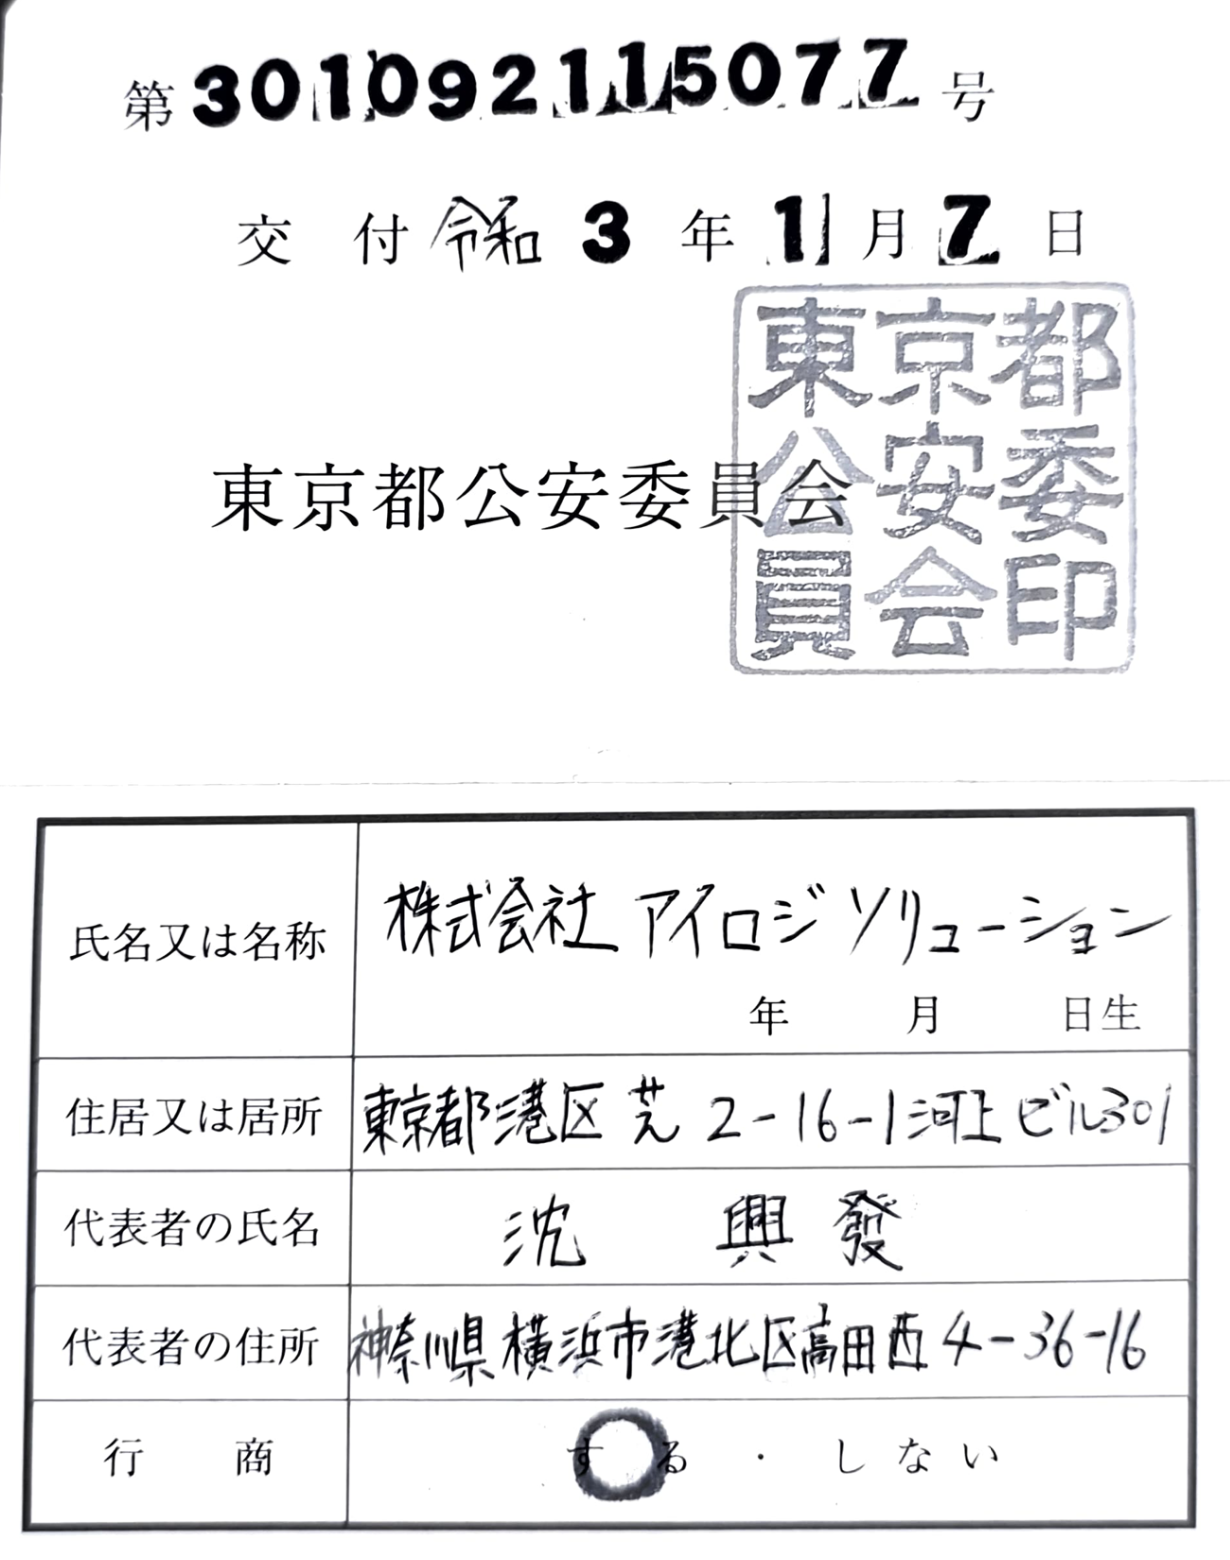 第301092115077号
交付 令和 3 年 1 月 7 日
東京都公安委員会
東京都
公安委
員会印
氏名又は名称 株式会社 アイロジソリューション
年 月 日生
住居又は居所 東京都港区芝2-16-1河上ビル301
代表者の氏名 沈 興發
代表者の住所 神奈川県横浜市港北区高田西4-36-16
行商 する・しない